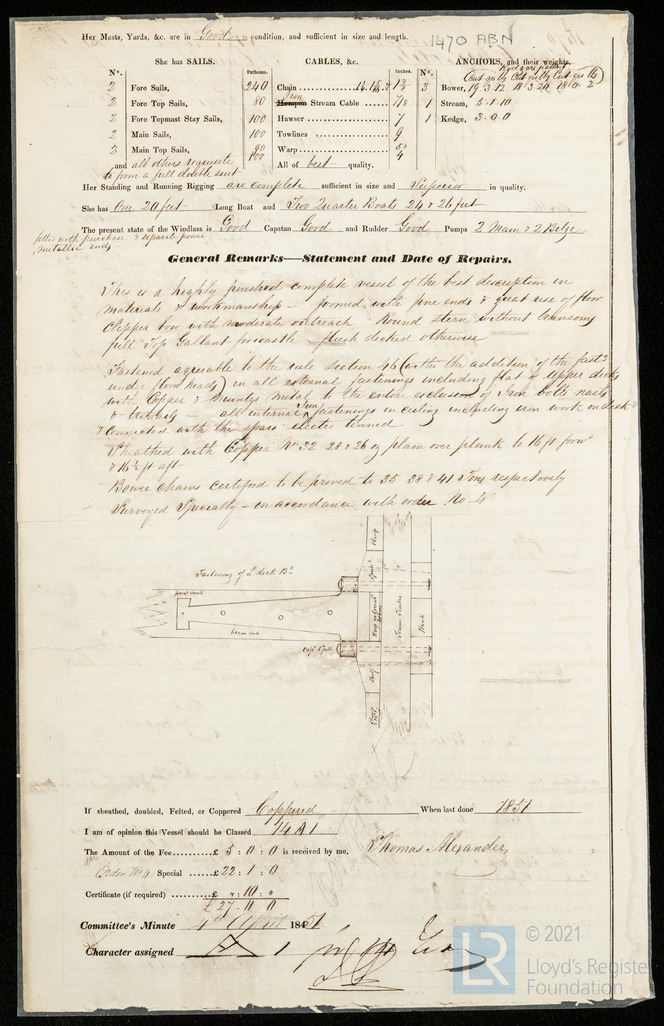 Her Masts, Yards, &c. are in Good condition, and sufficient in size and length.
1470 ABN
She has SAILS.
CABLES, &c.
ANCHORS, and their weights.
N°.
Fathoms.
Inches.
N°.
2 Fore Sails,
2 Fore Top Sails,
2 Fore Topmast Stay Sails,
2 Main Sails,
2 Main Top Sails,
and all others requisite
to form a full double suit
240 Chain
80 Iron Hempen Stream Cable 7/8
100 Hawser 7
100 Towlines 9
90 Warp
100 4
All of best quality.
3 Bower, 19 3 12 18 3 20 18 0 2
1 Stream, 5-1-10
1 Kedge, 3-0-0
Her Standing and Running Rigging are complete sufficient in size and Superior in quality.
She has One 20 feet Long Boat and Two Quarter Boats 24 & 26 feet
The present state of the Windlass is Good Capstan Good and Rudder Good Pumps 2 Main & 2 Bilge
fitted with purchase & separate power
metallic ends
General Remarks—Statement and Date of Repairs.
This is a highly finished complete vessel of the best description in
materials & workmanship - formed with fine ends & great rise of floor
Clipper bow with moderate outreach Round Stern without transoms
full Top Gallant forecastle - flush decked otherwise
Fastened agreeable to the rule section 46 (with the addition of the fast^s
under (Coonheads) in all external fastenings including flat of upper decks
with Copper & muntz metal to the entire exclusion of Iron bolts nails
& - all internal Iron fastenings in ceiling including iron work on deck &
& connected with the spars electro tinned
Sheathed with Copper N° 32 28 & 26 oz plain over plank to 16 ft forw^d
& 16½ ft aft
Bower chains certified to be proved to 35 38 & 41 Tons respectively
Surveyed Specially - in accordance with order No 4
Fastening of 2^d deck B^s
beam end
Shelf
If sheathed, doubled, Felted, or Coppered Coppered When last done 1851
I am of opinion this Vessel should be Classed 14 A 1
The Amount of the Fee £ 5 : 0 : 0 is received by me, Thomas Alexander
Order N° 4 Special £ 22 : 1 : 0
Certificate (if required) £ " : 10 : "
£ 27 11 0
Committee's Minute 4th April 1851
Character assigned A 1
LR
© 2021
Lloyd's Register
Foundation